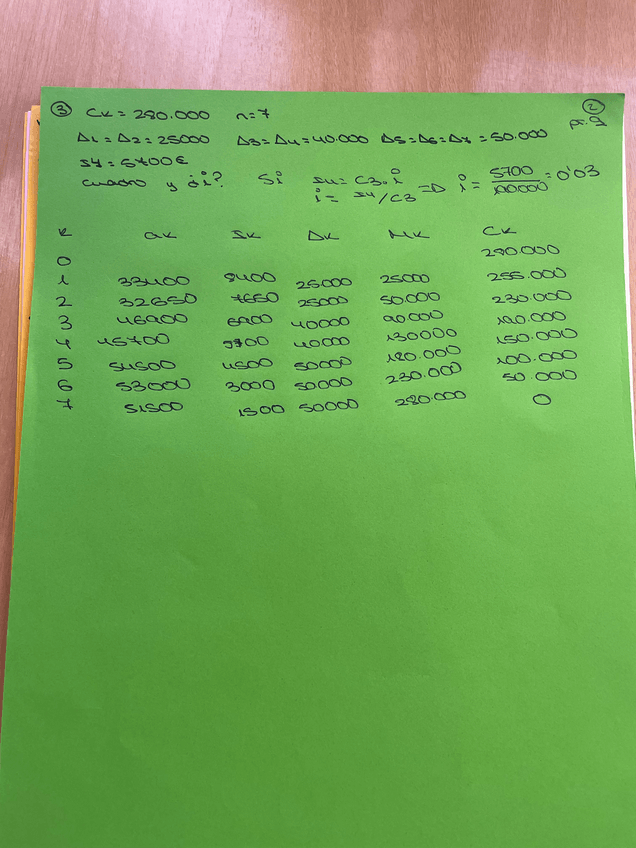 ③ CK = 280.000 n=7 ②
pr. 9
Δ1 = Δ2 = 25000 Δ3=Δ4=40.000 Δ5=Δ6=Δ7 = 50.000
S4 = 5700€
cuadro y ¿i? Si S4 = C3.i
i = S4/C3 => i = 5700/190000 = 0'03
K aK SK ΔK MK CK
0 280.000
1 33400 8400 25000 25000 255.000
2 32650 7650 25000 50.000 230.000
3 46900 6900 40000 90.000 190.000
4 45700 5700 40000 130000 150.000
5 54500 4500 50000 180.000 100.000
6 53000 3000 50000 230.000 50.000
7 51500 1500 50000 280.000 0